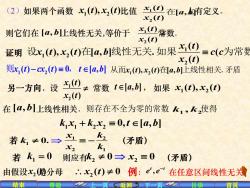 (2) 如果两个函数 x₁(t), x₂(t)比值 x₁(t)/x₂(t) 在[a, b]有定义.
则它们在 [a, b]上线性无关,等价于 x₁(t)/x₂(t) 常数.
证明 设x₁(t), x₂(t)在[a, b]线性无关, 如果 x₁(t)/x₂(t) ≡ c(c为常数
则x₁(t)−cx₂(t)≡0, t∈[a,b] 从而x₁(t), x₂(t)在[a,b]上线性相关. 矛盾
另一方向. 设 x₁(t)/x₂(t) ≢ 常数 t∈[a,b], 如果 x₁(t), x₂(t)
在 [a, b]上线性相关. 则存在不全为零的常数 K₁, K₂使得
k₁x₁ + k₂x₂ ≡ 0, t∈[a,b]
若 k₁ ≠ 0. ⇒ x₁/x₂ = −k₂/k₁ (矛盾)
若 k₁ = 0 则应有k₂ ≠ 0 ⇒ x₂ = 0 (矛盾)
由假设x₂(t)为分母 ∴ x₂(t) ≢ 0 例: eᵗ, e⁻ᵗ 在任意区间线性无关
结束